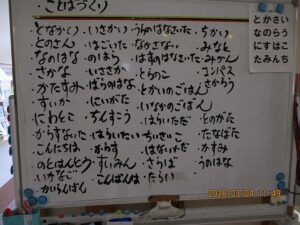 ことばづくり
・となかい
・とのさん
・なのはな
・さかな
・かたすみ
・すいか
・にわとこ
・からすないた
・こんにちは
・いかなご
・いさかい
・はごいた
・のはら
・いささか
・ばらのはな
・にいがた
・ちんすこう
・はらいたい
・からす
・すいみん
・こんばんは
・うらのはなさいた
・とらのこ
・とかいのごはん
・いなかのごはん
・はらいただ
・ちいさいこ
・はないかだ
・さらば
・たらい
・ちかい
・みなと
・みかん
・コンパス
・さからう
・とのがた
・たなばた
・かすみ
・うのはな
とかさい
なのらう
にすはこ
たみんち
2026/03/04 11:49